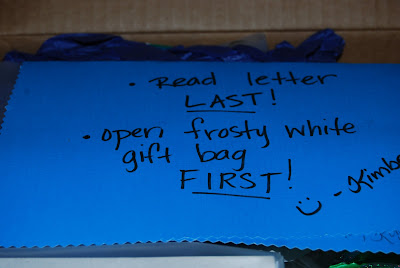 • Read letter
LAST!
• open frosty white
gift bag
FIRST!